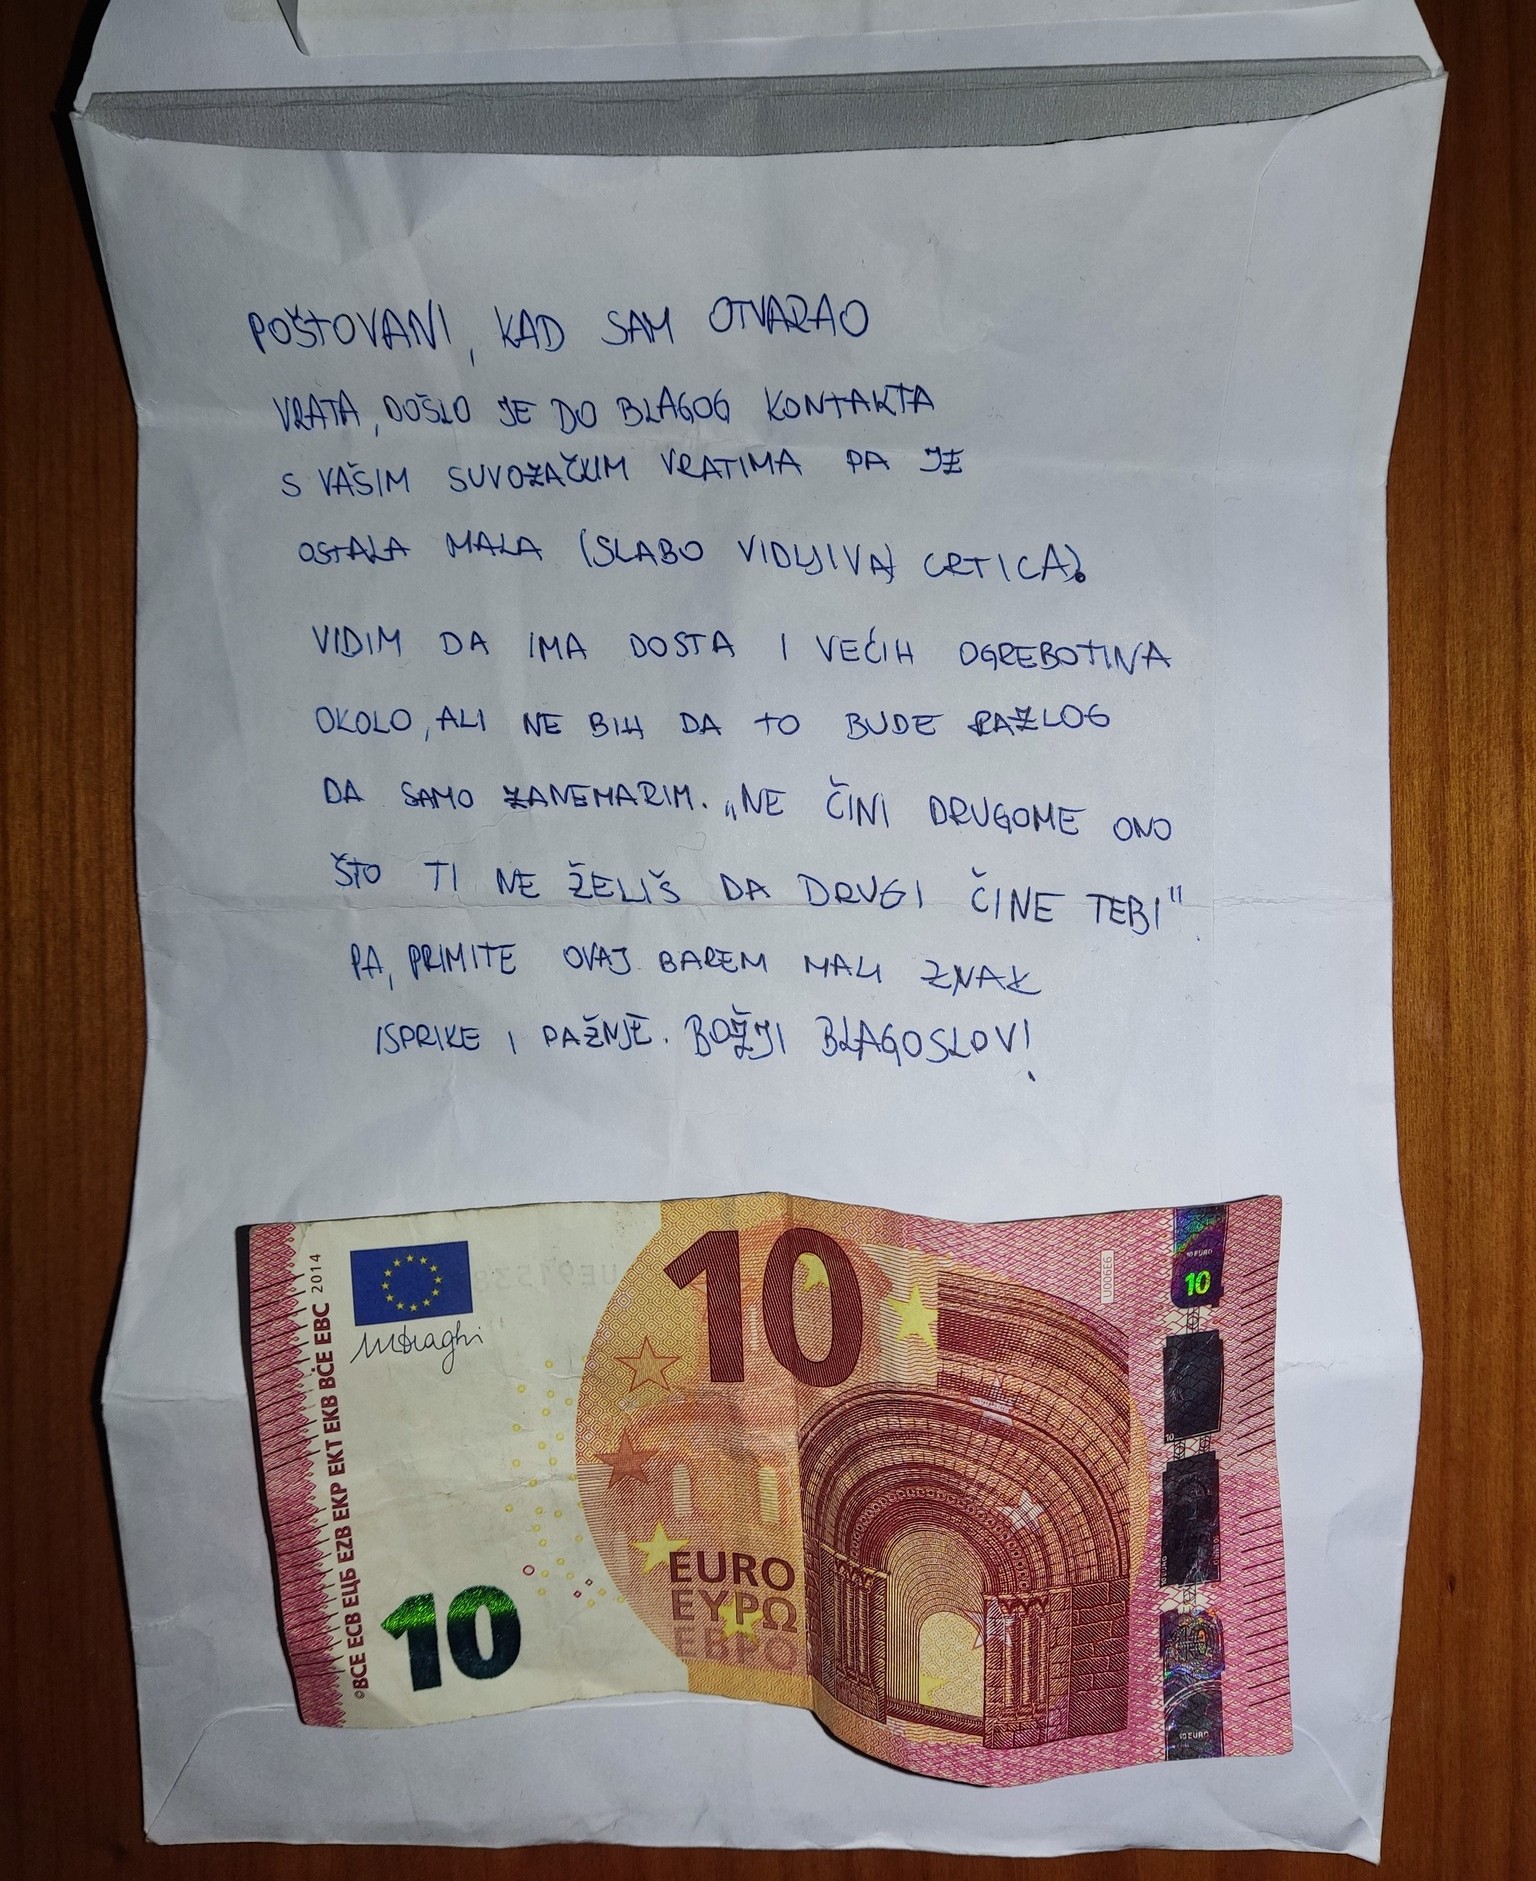 POŠTOVANI, KAD SAM OTVARAO
VRATA, DOŠLO JE DO BLAGOG KONTAKTA
S VAŠIM SUVOZAČKIM VRATIMA PA JE
OSTALA MALA (SLABO VIDLJIVA) CRTICA).
VIDIM DA IMA DOSTA I VEĆIH OGREBOTINA
OKOLO, ALI NE BIH DA TO BUDE RAZLOG
DA SAMO ZANEMARIM. „NE ČINI DRUGOME ONO
ŠTO TI NE ŽELIŠ DA DRUGI ČINE TEBI"
PA, PRIMITE OVAJ BAREM MALI ZNAK
ISPRIKE I PAŽNJE. BOŽJI BLAGOSLOV!
©BCE ECB ЕЦБ EZB EKP EKT EKB BĊE EBC 2014
M Draghi
10
10
EURO
ΕΥΡΩ
ЕВРО
U006E6
10 EURO
10
10 EURO